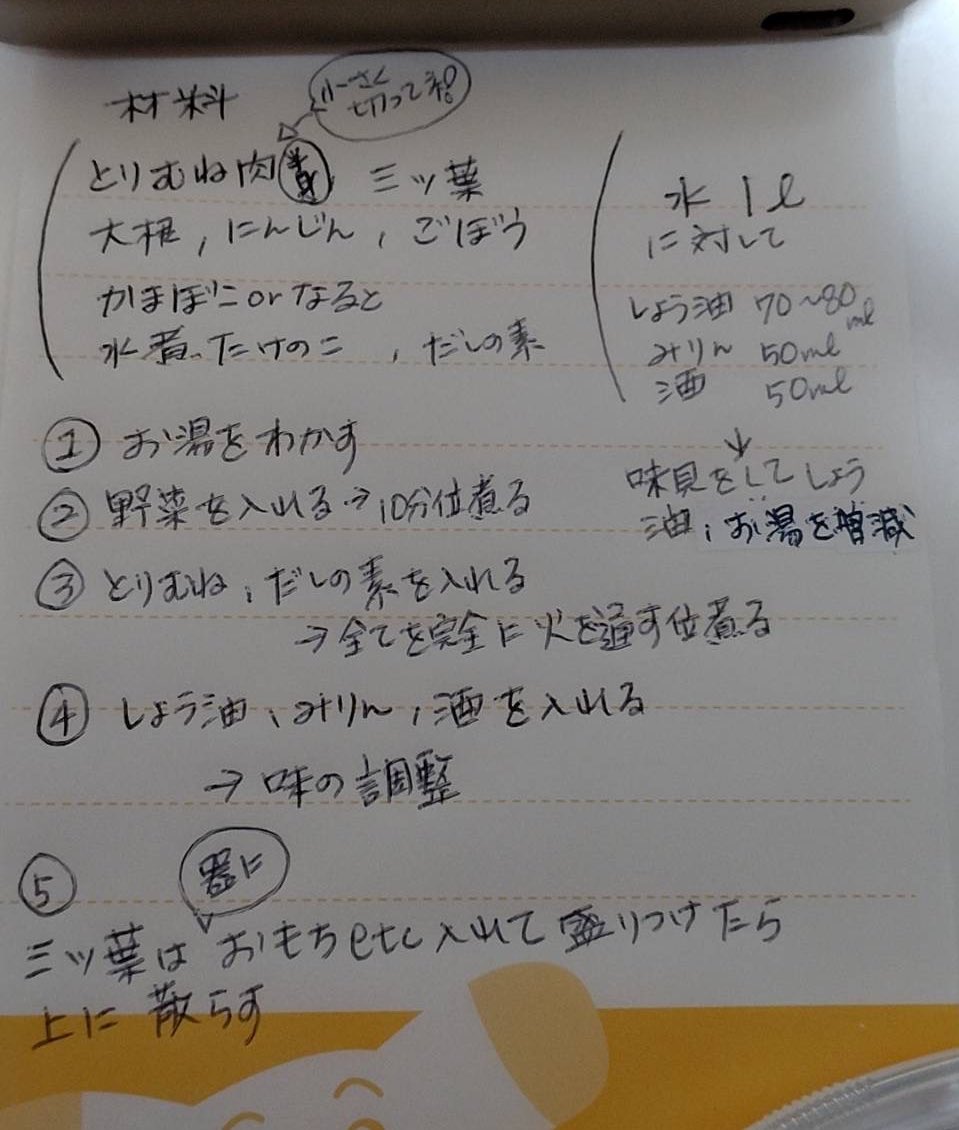 材料
小さく
切ってネ!
とりむね肉 三ッ葉
大根,にんじん,ごぼう
かまぼこorなると
水煮たけのこ,だしの素
水 1ℓ
に対して
しょう油 70〜80
ml
みりん 50ml
酒 50ml
↓
味見をしてしょう
油、お湯を増減
① お湯をわかす
② 野菜を入れる→10分位煮る
③ とりむね、だしの素を入れる
→全てを完全に火を通す位煮る
④ しょう油、みりん,酒を入れる
→味の調整
⑤
器に
三ッ葉はおもちetc入れて盛りつけたら
上に散らす